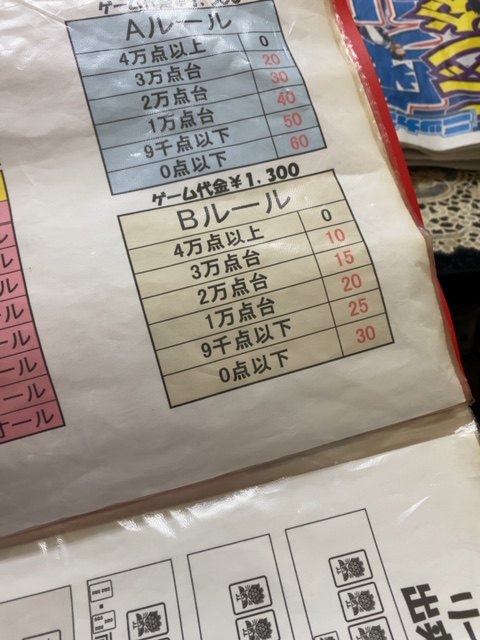 Aルール
4万点以上 0
3万点台 20
2万点台 30
1万点台 40
9千点以下 50
0点以下 60
ゲーム代金¥1.300
Bルール
4万点以上 0
3万点台 10
2万点台 15
1万点台 20
9千点以下 25
0点以下 30
ール
ール
オール